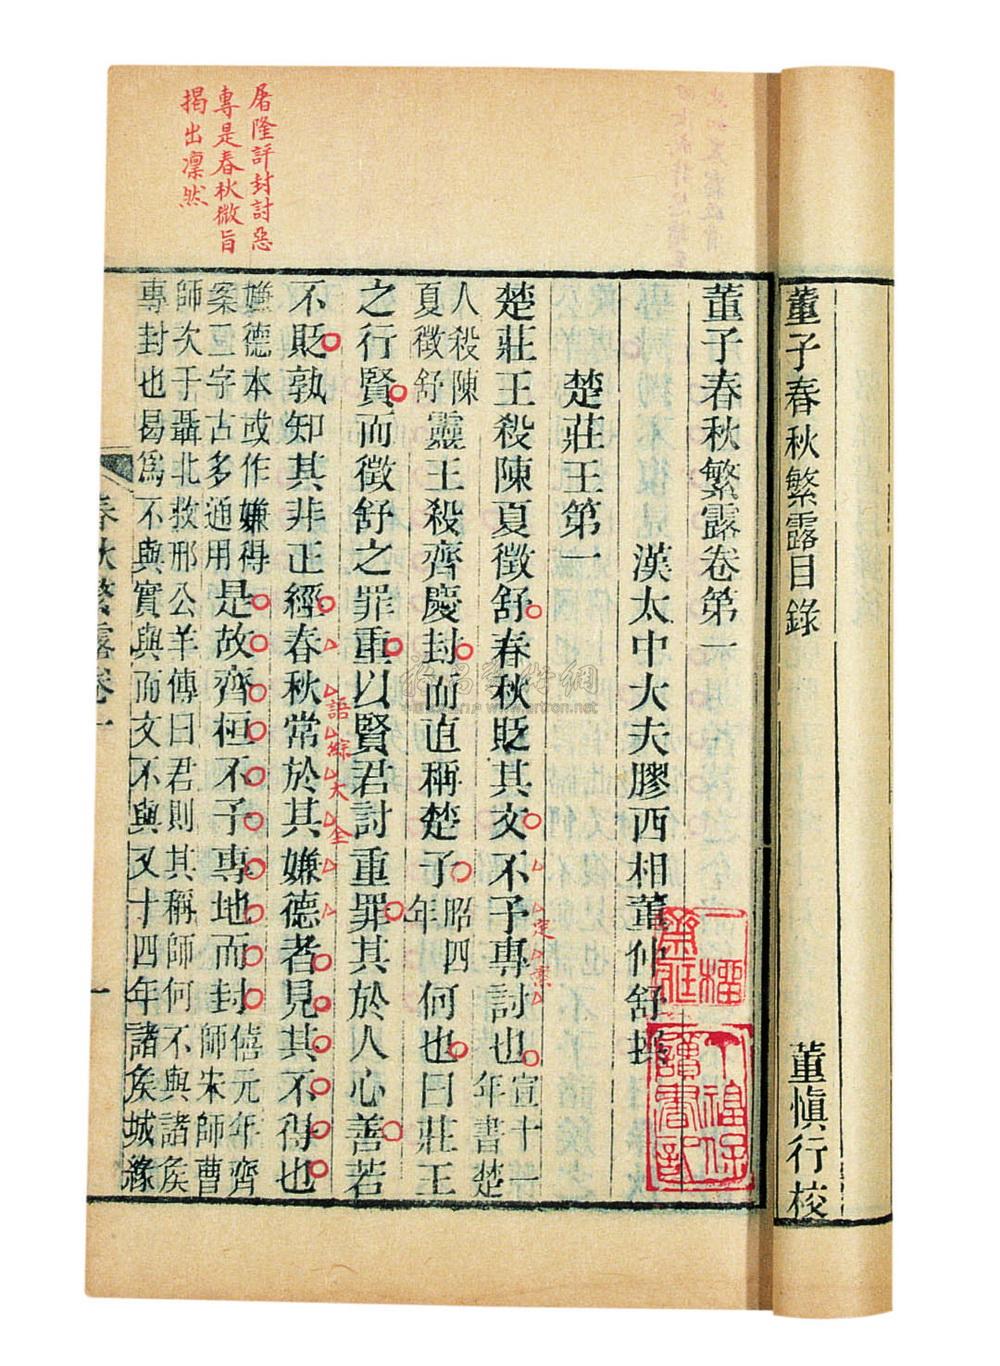 董子春秋繁露目錄
董慎行校
董子春秋繁露卷第一
漢太中大夫膠西相董仲舒撰
楚莊王第一
楚莊王殺陳夏徵舒春秋貶其文不予專討也宣十一年書楚
人殺陳夏徵舒靈王殺齊慶封而直稱楚子昭四年何也曰莊王
之行賢而徵舒之罪重以賢君討重罪其於人心善若
不貶孰知其非正經春秋常於其嫌德者見其不得也
嫌德本或作嫌得案二字古多通用是故齊桓不予專地而封僖元年齊師宋師曹
師次于聶北救邢公羊傳曰君則其稱師何不與諸侯
專封也曷為不與實與而文不與又十四年諸侯城緣
春秋繁露卷一
一
屠隆評封討惡
專是春秋微旨
揭出凜然
語綜大全
定案
讀書記
www.artron.net